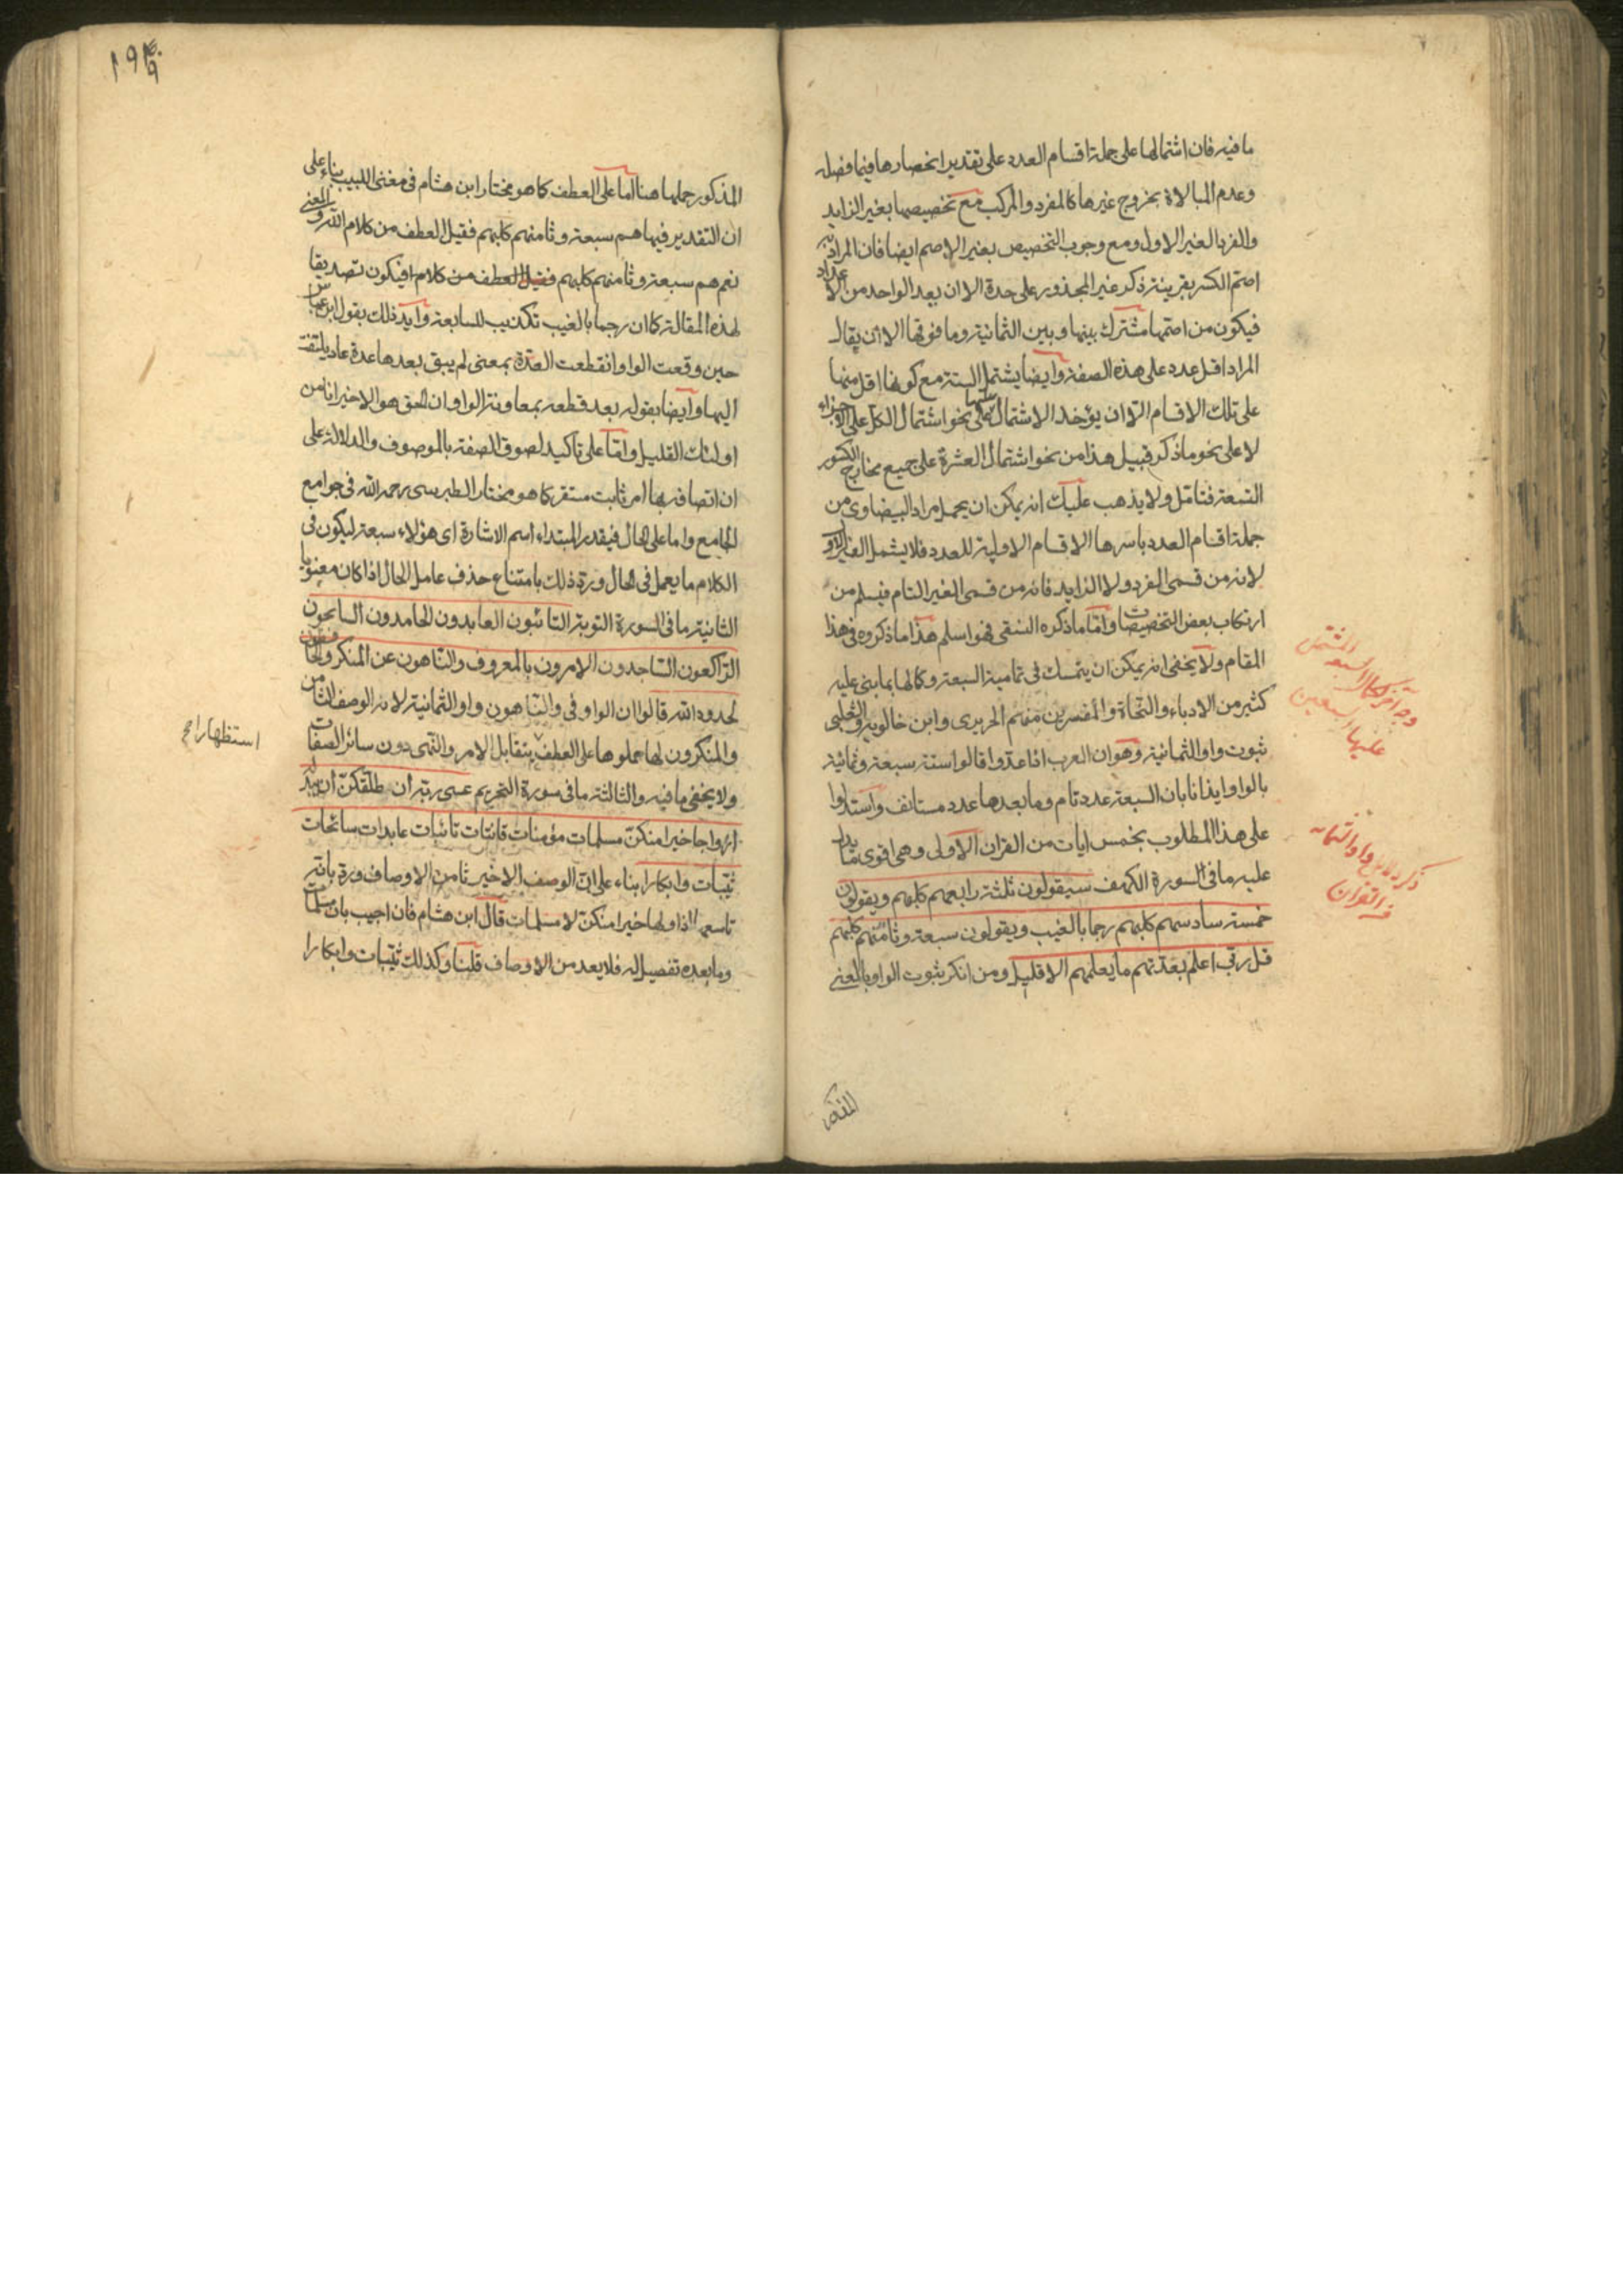 ما فيه فان اشتمالها على جملة اقسام العدد على تقدير انحصارها فيما فصله
وعدم المبالاة بخروج غيرها كالمفرد والمركب مع تخصيصها بغير الزايد
والفرد الغير الاول ومع وجوب التخصيص بغير الاصم ايضا فان المراد به
اصم الكسر بقرينة ذكر غير المجذور على حدة الا ان يعد الواحد من الاعداد
فيكون من اصمها مشترك بينها وبين الثمانية وما فوقها الا ان يقال
المراد اقل عدد على هذه الصفة وايضا يشتمل الستة مع كونها اقل منها
على تلك الاقسام الا ان يؤخذ الاشتمال عليها على نحو اشتمال الكل على الاجزاء
لا على نحو ما ذكر قبيل هذا من نحو اشتمال العشرة على جميع مخارج الكسور
التسعة فتامل ولا يذهب عليك انه يمكن ان يحمل مراد البيضاوي من
جملة اقسام العدد باسرها الاقسام الاولية للعدد فلا يشمل الغير الاول
لانه من قسمي الفرد ولا الزايد فانه من قسمي الغير التام فيسلم من
ارتكاب بعض التخصيصات واما ما ذكره النسفي فهو اسلم هذا ما ذكروه في هذا
المقام ولا يخفى انه يمكن ان يتمسك في تمامية السبعة وكمالها بما بنى عليه
كثير من الادباء والنحاة والمفسرين منهم الحريري وابن خالويه والثعلبي
ثبوت واو الثمانية وهو ان العرب اذا عدوا قالوا ستة سبعة وثمانية
بالواو ايذانا بان السبعة عدد تام وما بعدها عدد مستانف واستدلوا
على هذا المطلوب بخمس ايات من القران الاولى وهي اقوى ما يدل
عليه ما في السورة الكهف سيقولون ثلثة رابعهم كلبهم ويقولون
خمسة سادسهم كلبهم رجما بالغيب ويقولون سبعة وثامنهم كلبهم
قل ربي اعلم بعدتهم ما يعلمهم الا قليل ومن انكر ثبوت الواو بالمعنى
المذكور
المذكور حملها هنا اما على العطف كما هو مختار ابن هشام في مغنى اللبيب بناء على
ان التقدير فيها هم سبعة وثامنهم كلبهم فقيل العطف من كلام الله والمعنى
نعم هم سبعة وثامنهم كلبهم فقيل العطف من كلام فيكون تصديقا
لهذه المقالة كما ان رجما بالغيب تكذيب للسابعة وايد ذلك بقول ابن عباس
حين وقعت الواو انقطعت العدة بمعنى لم يبق بعدها عدة عاد يلتفت
اليها وايضا بقوله بعد قطعه بمعاونة الواو ان الحق هو الاخير انا من
اولئك القليل واما على تاكيد لصوق الصفة بالموصوف والدلالة على
ان اتصافه بها امر ثابت مستقر كما هو مختار الطبرسي رحمه الله في جوامع
الجامع واما على الحال فيقدر المبتداء اسم الاشارة اى هؤلاء سبعة ليكون في
الكلام ما يعمل في الحال ورد ذلك بامتناع حذف عامل الحال اذا كان معنويا
الثانية ما في السورة التوبة التائبون العابدون الحامدون السايحون
الراكعون الساجدون الامرون بالمعروف والناهون عن المنكر والحافظون
لحدود الله قالوا ان الواو في والناهون واو الثمانية لانه الوصف الثامن
والمنكرون لها حملوها على العطف بتقابل الامر والنهى دون سائر الصفات
ولا يخفى ما فيه والثالثة ما في سورة التحريم عسى ربه ان طلقكن ان يبدله
ازواجا خيرا منكن مسلمات مؤمنات قانتات تائبات عابدات سائحات
ثيبات وابكارا بناء على ان الوصف الاخير ثامن الاوصاف ورد بانه
تاسعها اذ اولها خيرا منكن لا مسلمات قال ابن هشام فان اجيب بان مسلمات
وما بعده تفصيل له فلا يعد من الاوصاف قلنا وكذلك ثيبات وابكارا
استظهارا